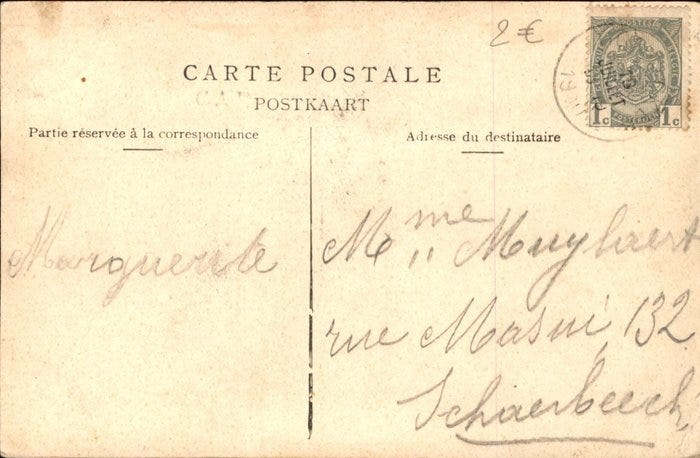 2€
CARTE POSTALE
POSTKAART
Partie réservée à la correspondance
Adresse du destinataire
1c 1c
JUILLET
Marguerite
Mme Muylaert
rue Masui, 132
Schaerbeeck